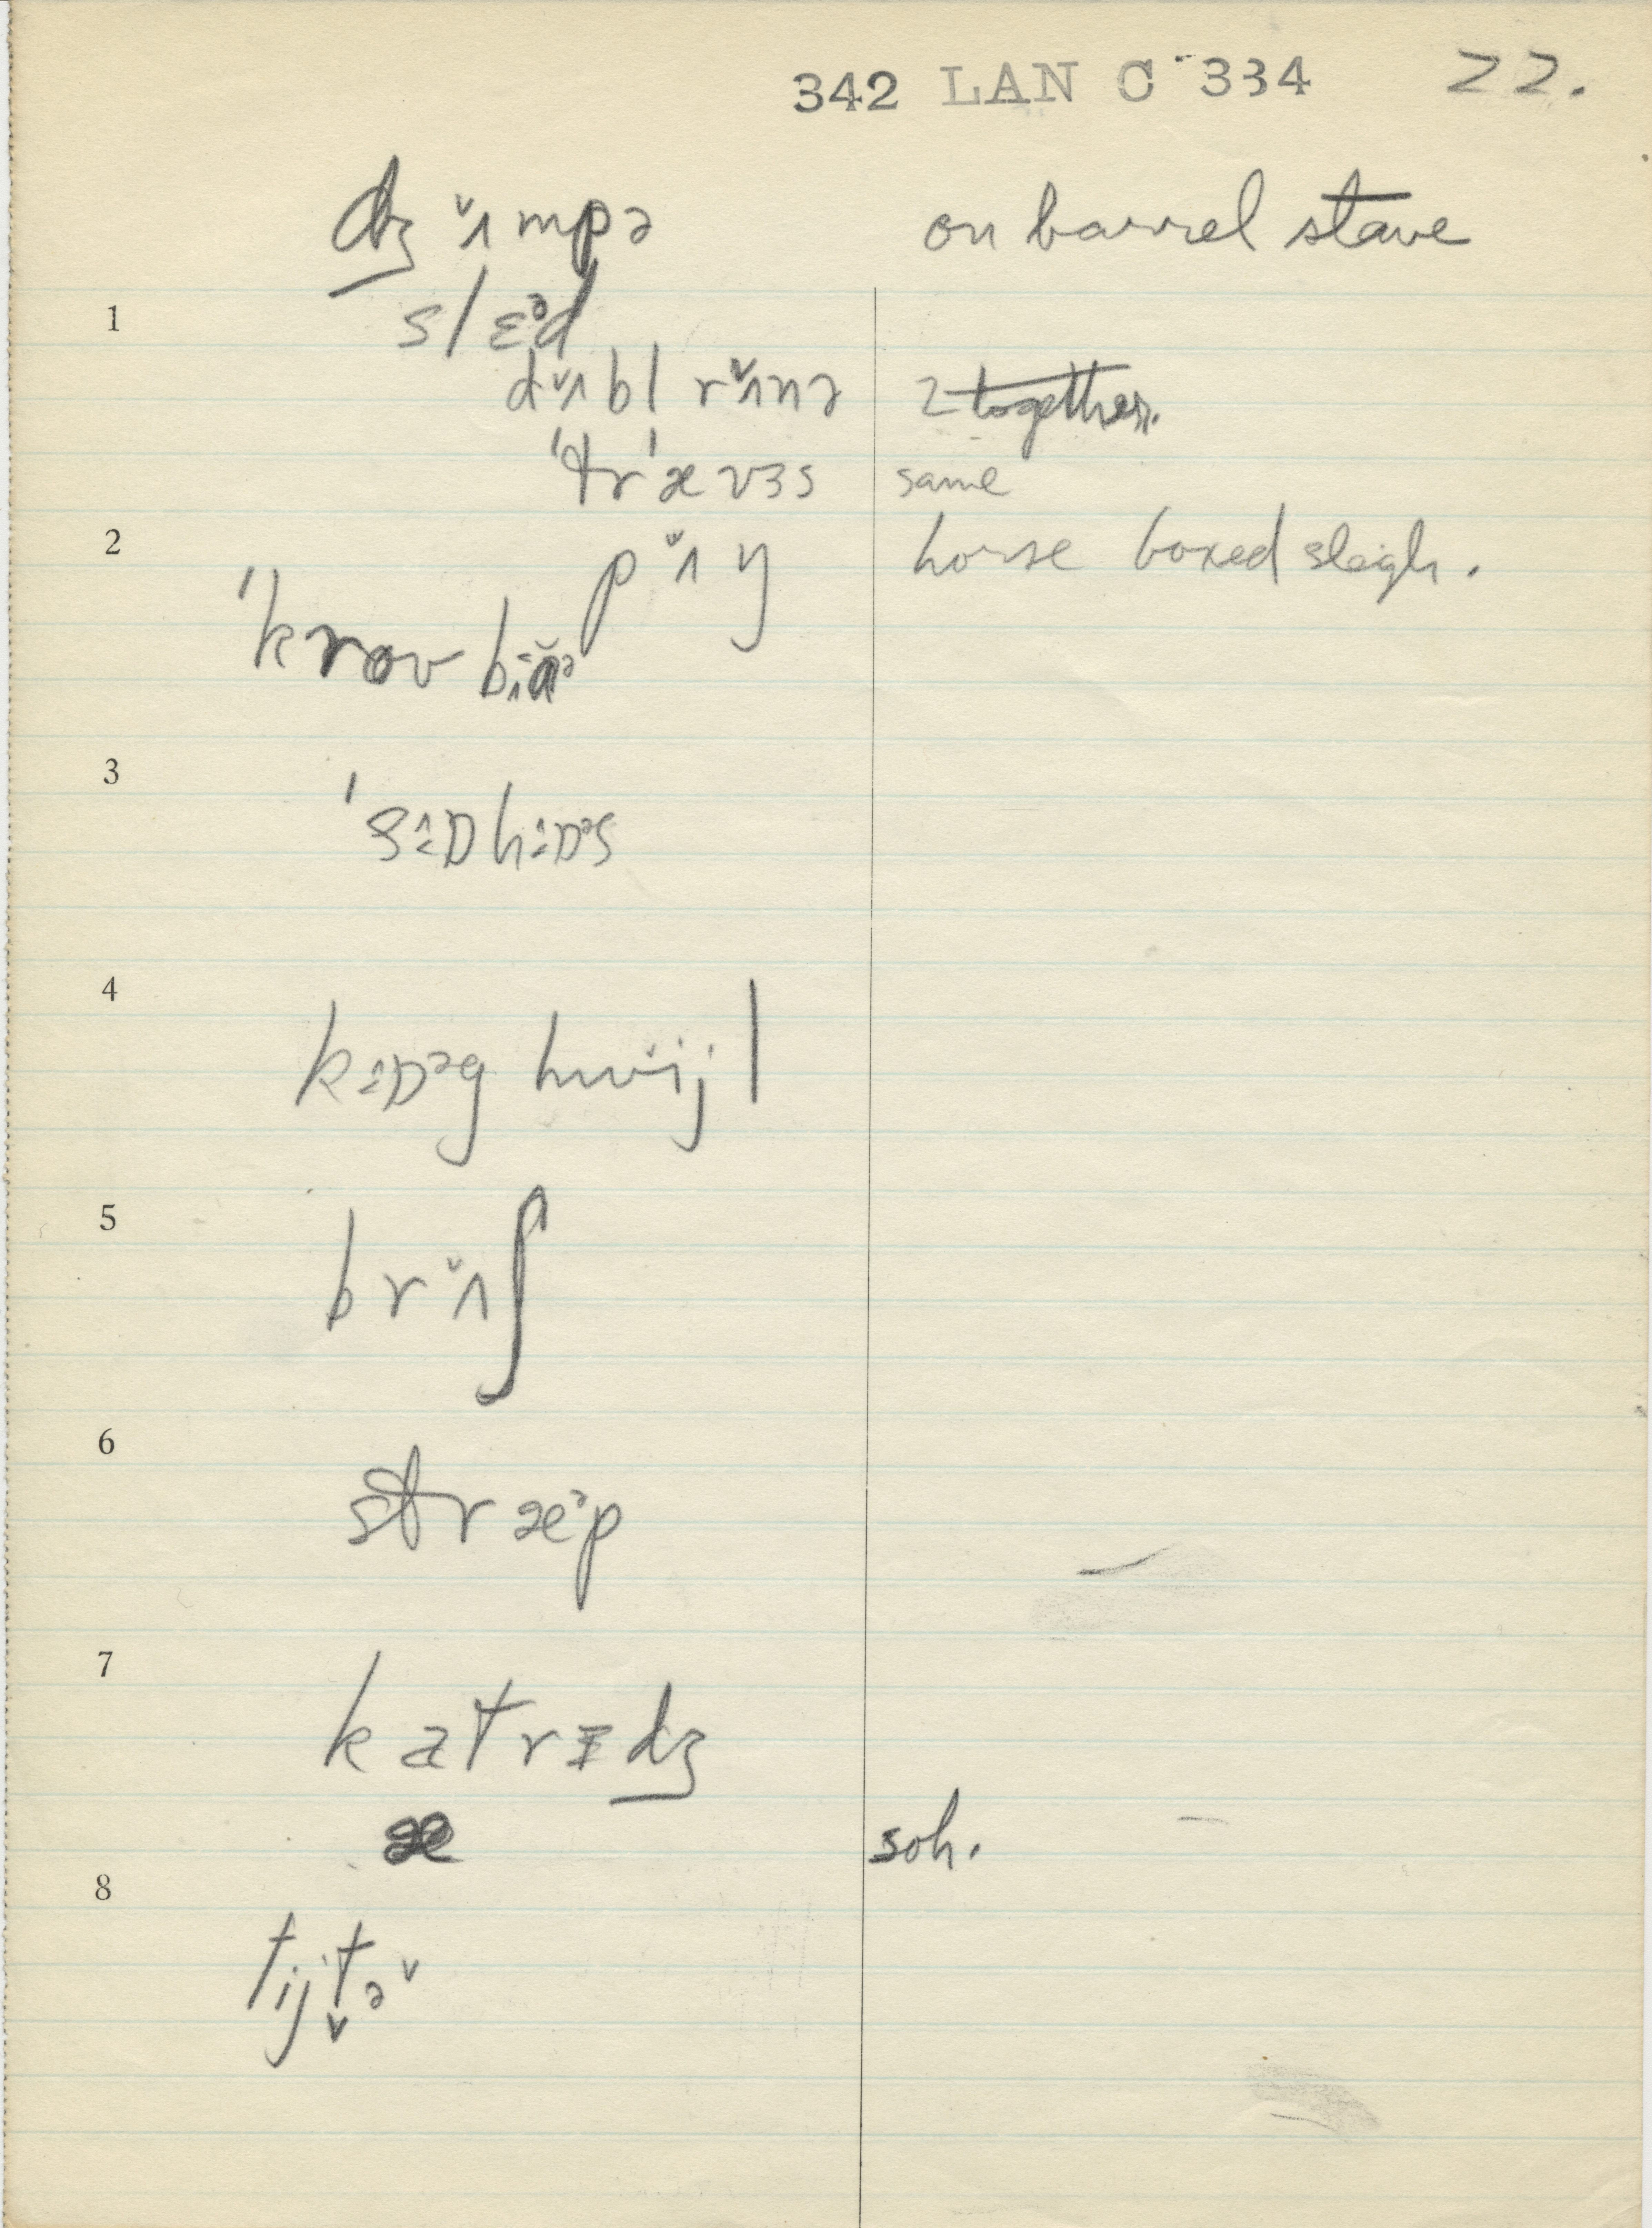 342 LAN C 334 22.
dʒʌ̌mpə on barrel stave
1
slɛᵊd
dʌ̌bl rʌ̌nə 2 together.
'tr'ævɜs same
2
pʌ̌ŋ horse boxed sleigh.
'krov
3
'sɒhɒᵊs
4
kɒᵊg hwijl
5
brʌ̌ʃ
6
stræᵊp
7
katrɪdʒ
æ soh.
8
tijtə